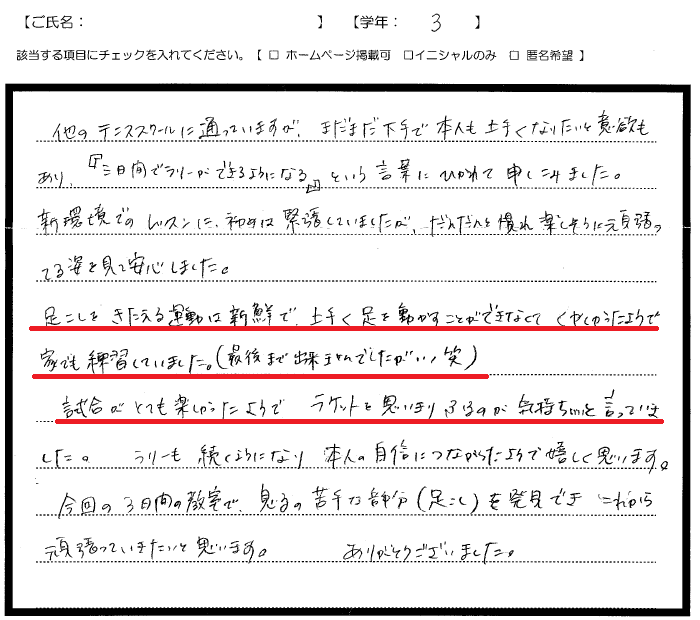 【ご氏名： 】 【学年： 3 】
該当する項目にチェックを入れてください。【 □ ホームページ掲載可 □イニシャルのみ □ 匿名希望 】
他のテニススクールに通っていますが、まだまだ下手で本人も上手くなりたいと意欲も
あり、『三日間でラリーができるようになる』という言葉にひかれて申しこみました。
新環境でのレッスンに、初日は緊張していましたが、だんだんと慣れ楽しそうに頑張っ
てる姿を見て安心しました。
足こしをきたえる運動は新鮮で、上手く足を動かすことができなくてくやしかったようで
家でも練習していました。(最後まで出来ませんでしたが(^^;笑)
試合がとても楽しかったようで ラケットを思いきりふるのが気持ちいいと言っていま
した。 ラリーも続くようになり 本人の自信につながったようで嬉しく思います。
今回の3日間の教室で、息子の苦手な部分(足こし)を発見でき これから
頑張っていきたいと思います。 ありがとうございました。